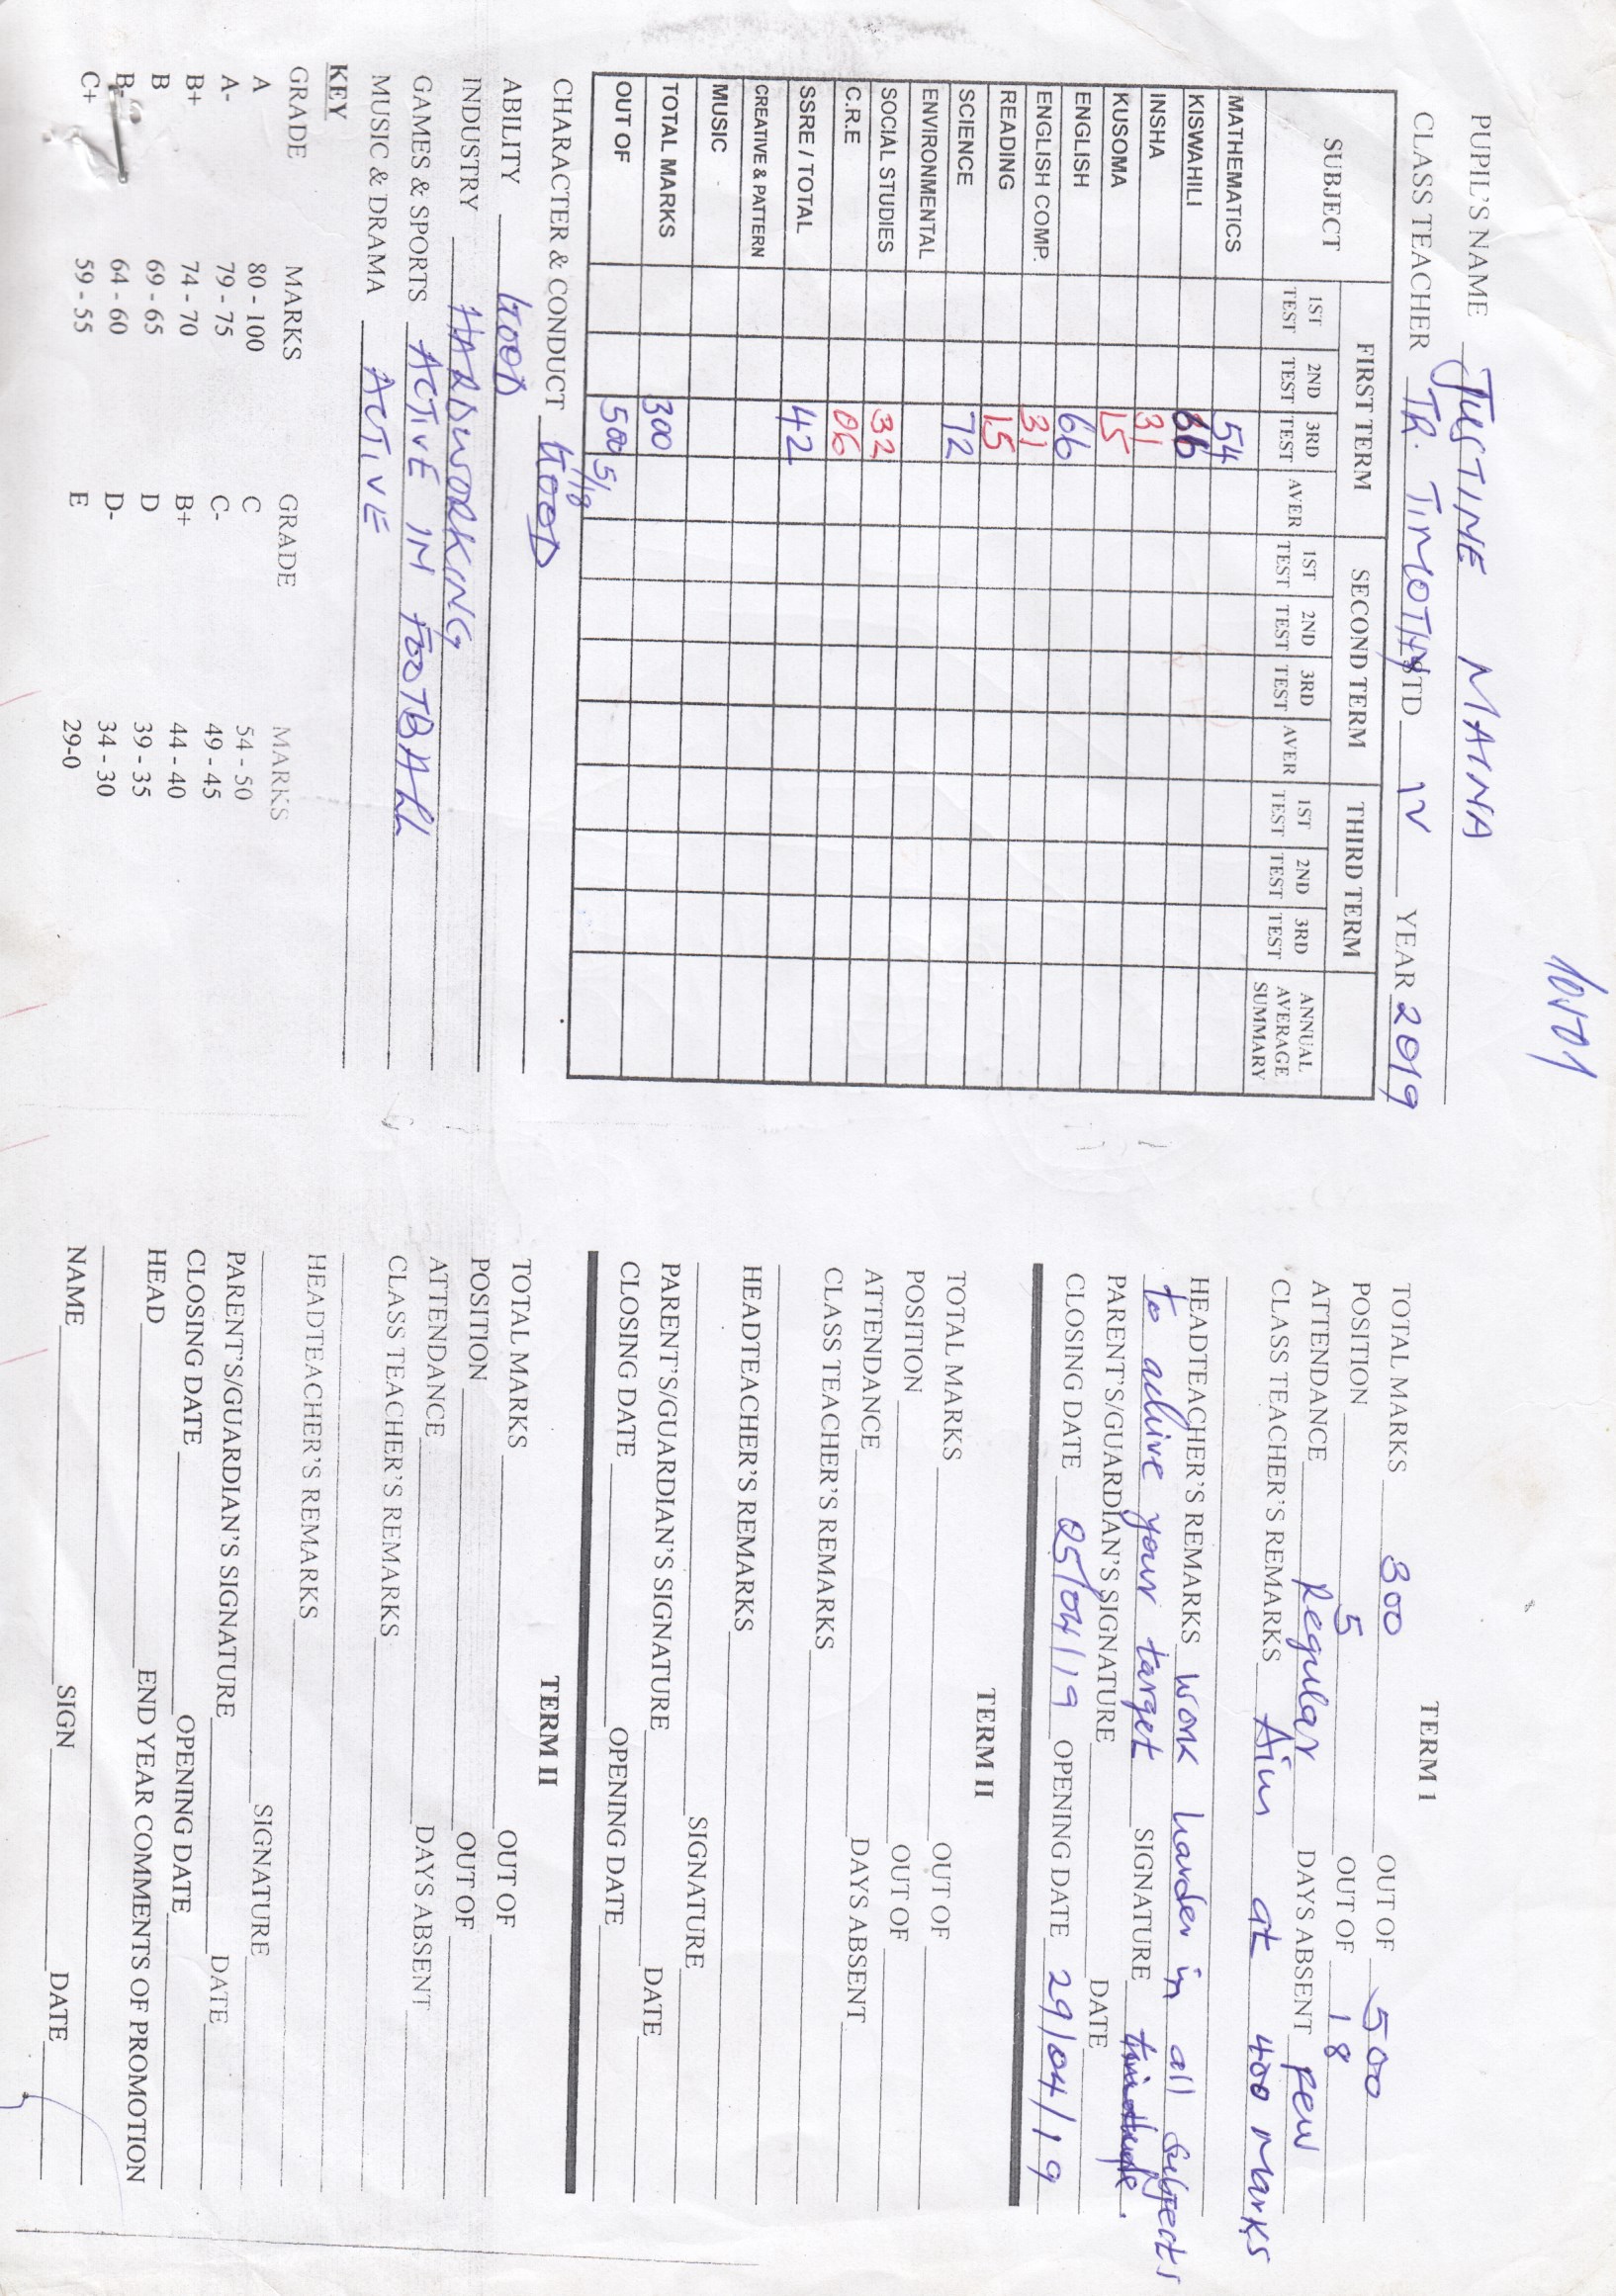 10501
PUPIL'S NAME JUSTINE MAINA
CLASS TEACHER TR. TIMOTHY STD IV YEAR 2019
SUBJECT FIRST TERM SECOND TERM THIRD TERM
1ST TEST 2ND TEST 3RD TEST AVER 1ST TEST 2ND TEST 3RD TEST AVER 1ST TEST 2ND TEST 3RD TEST ANNUAL AVERAGE SUMMARY
MATHEMATICS 54
KISWAHILI 66
INSHA 31
KUSOMA 15
ENGLISH 66
ENGLISH COMP. 31
READING 15
SCIENCE 72
ENVIRONMENTAL
SOCIAL STUDIES 32
C.R.E 06
SSRE / TOTAL 42
CREATIVE & PATTERN
MUSIC
TOTAL MARKS 300
OUT OF 500 5/18
CHARACTER & CONDUCT GOOD
ABILITY GOOD
INDUSTRY HARDWORKING
GAMES & SPORTS ACTIVE IN FOOTBALL
MUSIC & DRAMA ACTIVE
KEY
GRADE MARKS GRADE MARKS
A 80 - 100 C 54 - 50
A- 79 - 75 C- 49 - 45
B+ 74 - 70 B+ 44 - 40
B 69 - 65 D 39 - 35
B- 64 - 60 D- 34 - 30
C+ 59 - 55 E 29-0
TERM 1
TOTAL MARKS 300 OUT OF 500
POSITION 5 OUT OF 18
ATTENDANCE Regular DAYS ABSENT Few
CLASS TEACHER'S REMARKS Aim at 400 marks
HEADTEACHER'S REMARKS Work harder in all subjects
to achive your target SIGNATURE
PARENT'S/GUARDIAN'S SIGNATURE DATE
CLOSING DATE 05/04/19 OPENING DATE 29/04/19
TERM II
TOTAL MARKS OUT OF
POSITION OUT OF
ATTENDANCE DAYS ABSENT
CLASS TEACHER'S REMARKS
HEADTEACHER'S REMARKS
SIGNATURE
PARENT'S/GUARDIAN'S SIGNATURE DATE
CLOSING DATE OPENING DATE
TERM II
TOTAL MARKS OUT OF
POSITION OUT OF
ATTENDANCE DAYS ABSENT
CLASS TEACHER'S REMARKS
HEADTEACHER'S REMARKS
SIGNATURE
PARENT'S/GUARDIAN'S SIGNATURE DATE
CLOSING DATE OPENING DATE
HEAD END YEAR COMMENTS OF PROMOTION
NAME SIGN DATE